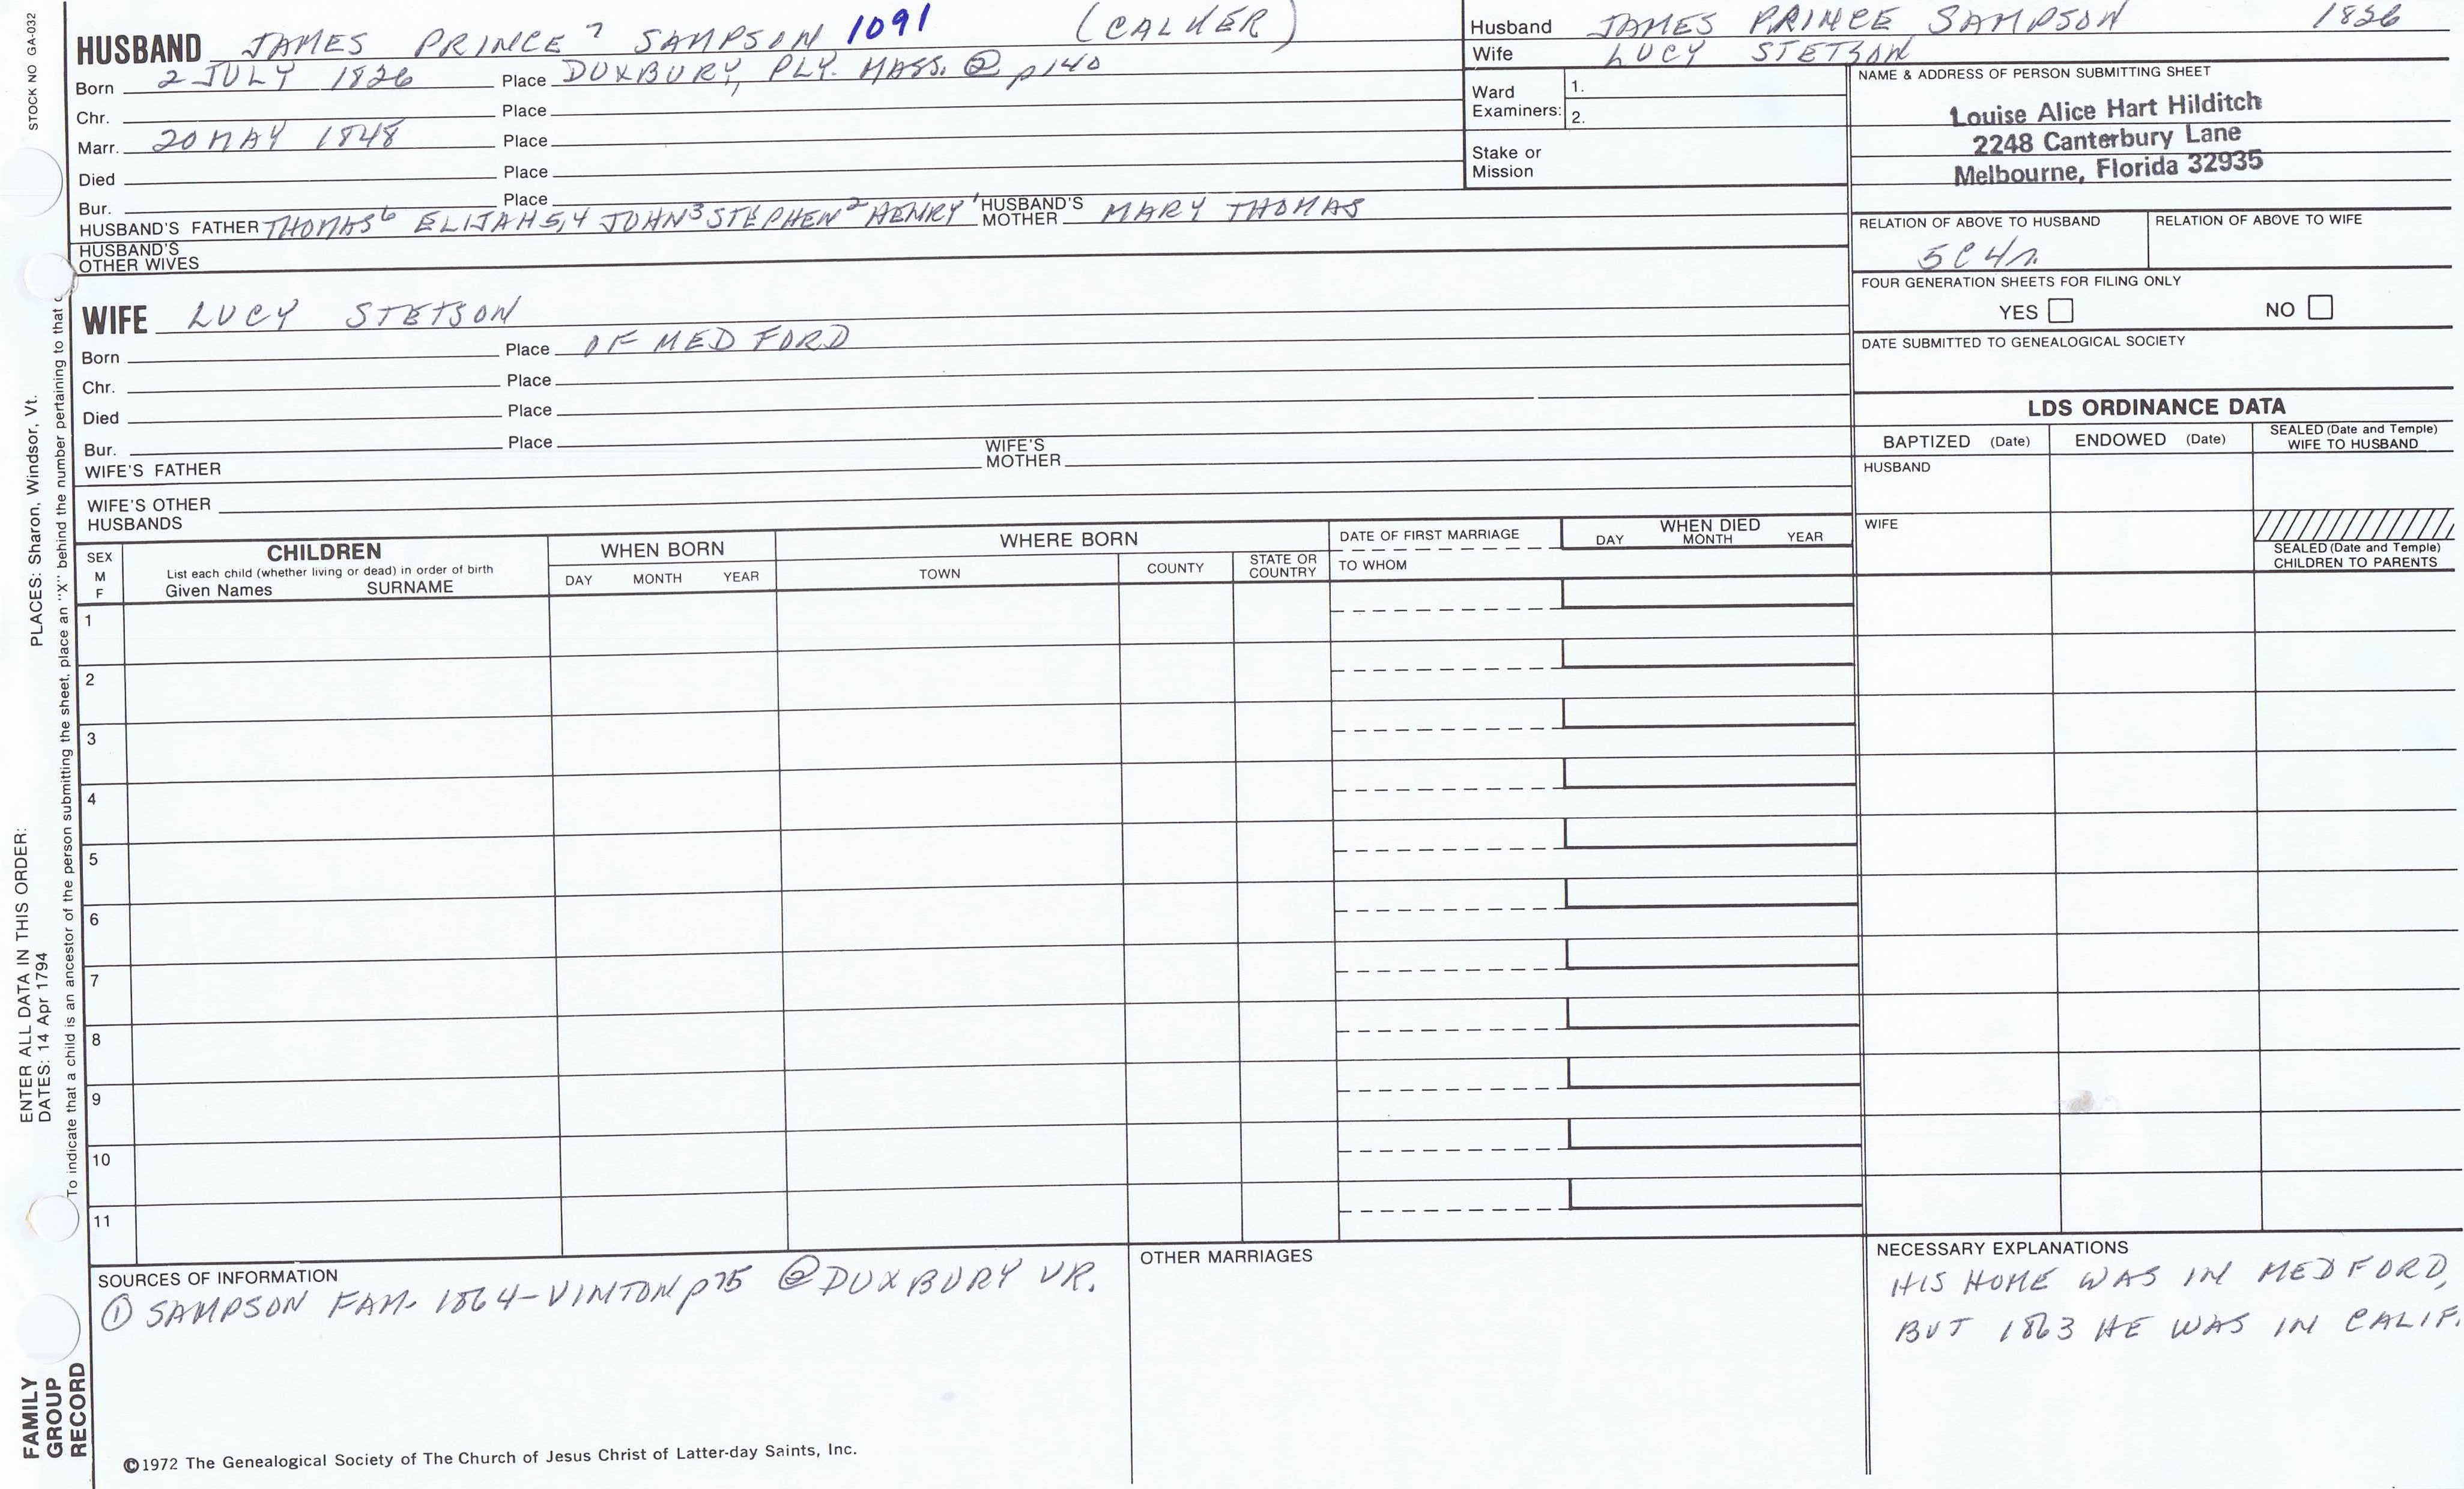 STOCK NO GA-032
HUSBAND JAMES PRINCE 7 SAMPSON 1091 (CALKER)
Born 2 JULY 1826 Place DUXBURY, PLY. MASS. ② p140
Chr. Place
Marr. 20 MAY 1848 Place
Died Place
Bur. Place
HUSBAND'S FATHER THOMAS6 ELIJAH5,4 JOHN3 STEPHEN2 HENRY1 HUSBAND'S MOTHER MARY THOMAS
HUSBAND'S
OTHER WIVES
WIFE LUCY STETSON
Born Place OF MEDFORD
Chr. Place
Died Place
Bur. Place
WIFE'S FATHER WIFE'S MOTHER
WIFE'S OTHER
HUSBANDS
Husband JAMES PRINCE SAMPSON 1826
Wife LUCY STETSON
Ward
Examiners:
1.
2.
Stake or
Mission
NAME & ADDRESS OF PERSON SUBMITTING SHEET
Louise Alice Hart Hilditch
2248 Canterbury Lane
Melbourne, Florida 32935
RELATION OF ABOVE TO HUSBAND
5C4r.
RELATION OF ABOVE TO WIFE
FOUR GENERATION SHEETS FOR FILING ONLY
YES NO
DATE SUBMITTED TO GENEALOGICAL SOCIETY
LDS ORDINANCE DATA
BAPTIZED (Date) ENDOWED (Date) SEALED (Date and Temple)
WIFE TO HUSBAND
HUSBAND
WIFE
SEALED (Date and Temple)
CHILDREN TO PARENTS
SEX
M
F
CHILDREN
List each child (whether living or dead) in order of birth
Given Names SURNAME
WHEN BORN
DAY MONTH YEAR
WHERE BORN
TOWN COUNTY STATE OR
COUNTRY
DATE OF FIRST MARRIAGE
TO WHOM
WHEN DIED
DAY MONTH YEAR
1
2
3
4
5
6
7
8
9
10
11
SOURCES OF INFORMATION
① SAMPSON FAM. 1864-VINTON p75 ② DUXBURY VR.
OTHER MARRIAGES
NECESSARY EXPLANATIONS
HIS HOME WAS IN MEDFORD,
BUT 1863 HE WAS IN CALIF.
©1972 The Genealogical Society of The Church of Jesus Christ of Latter-day Saints, Inc.
FAMILY
GROUP
RECORD
ENTER ALL DATA IN THIS ORDER:
DATES: 14 Apr 1794
PLACES: Sharon, Windsor, Vt.
To indicate that a child is an ancestor of the person submitting the sheet, place an "X" behind the number pertaining to that